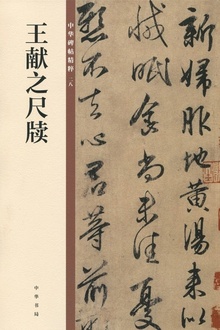 王献之尺牍
中华碑帖精粹
中华书局
新婦服地黄湯
減眠食尚未佳憂
懸不去心君等前